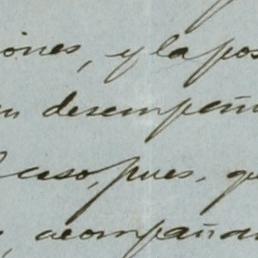 iones, y la pos
en desempeñ
l caso, pues, qu
, acompañan